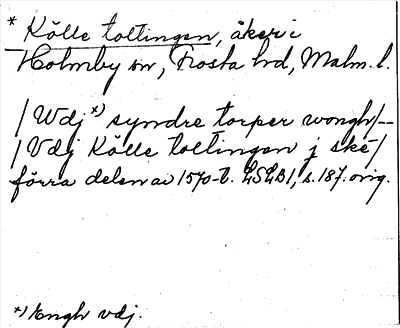 * Kölle toltingen, åker i
Holmby sn, Frosta hd, Malm. l.
/Wdj *) syndre torper wongh/—
/Vdj Kölle toeltingen j ske/
förra delen av 1570-t. LSLB1, s. 187. orig.
*) Engh vdj.